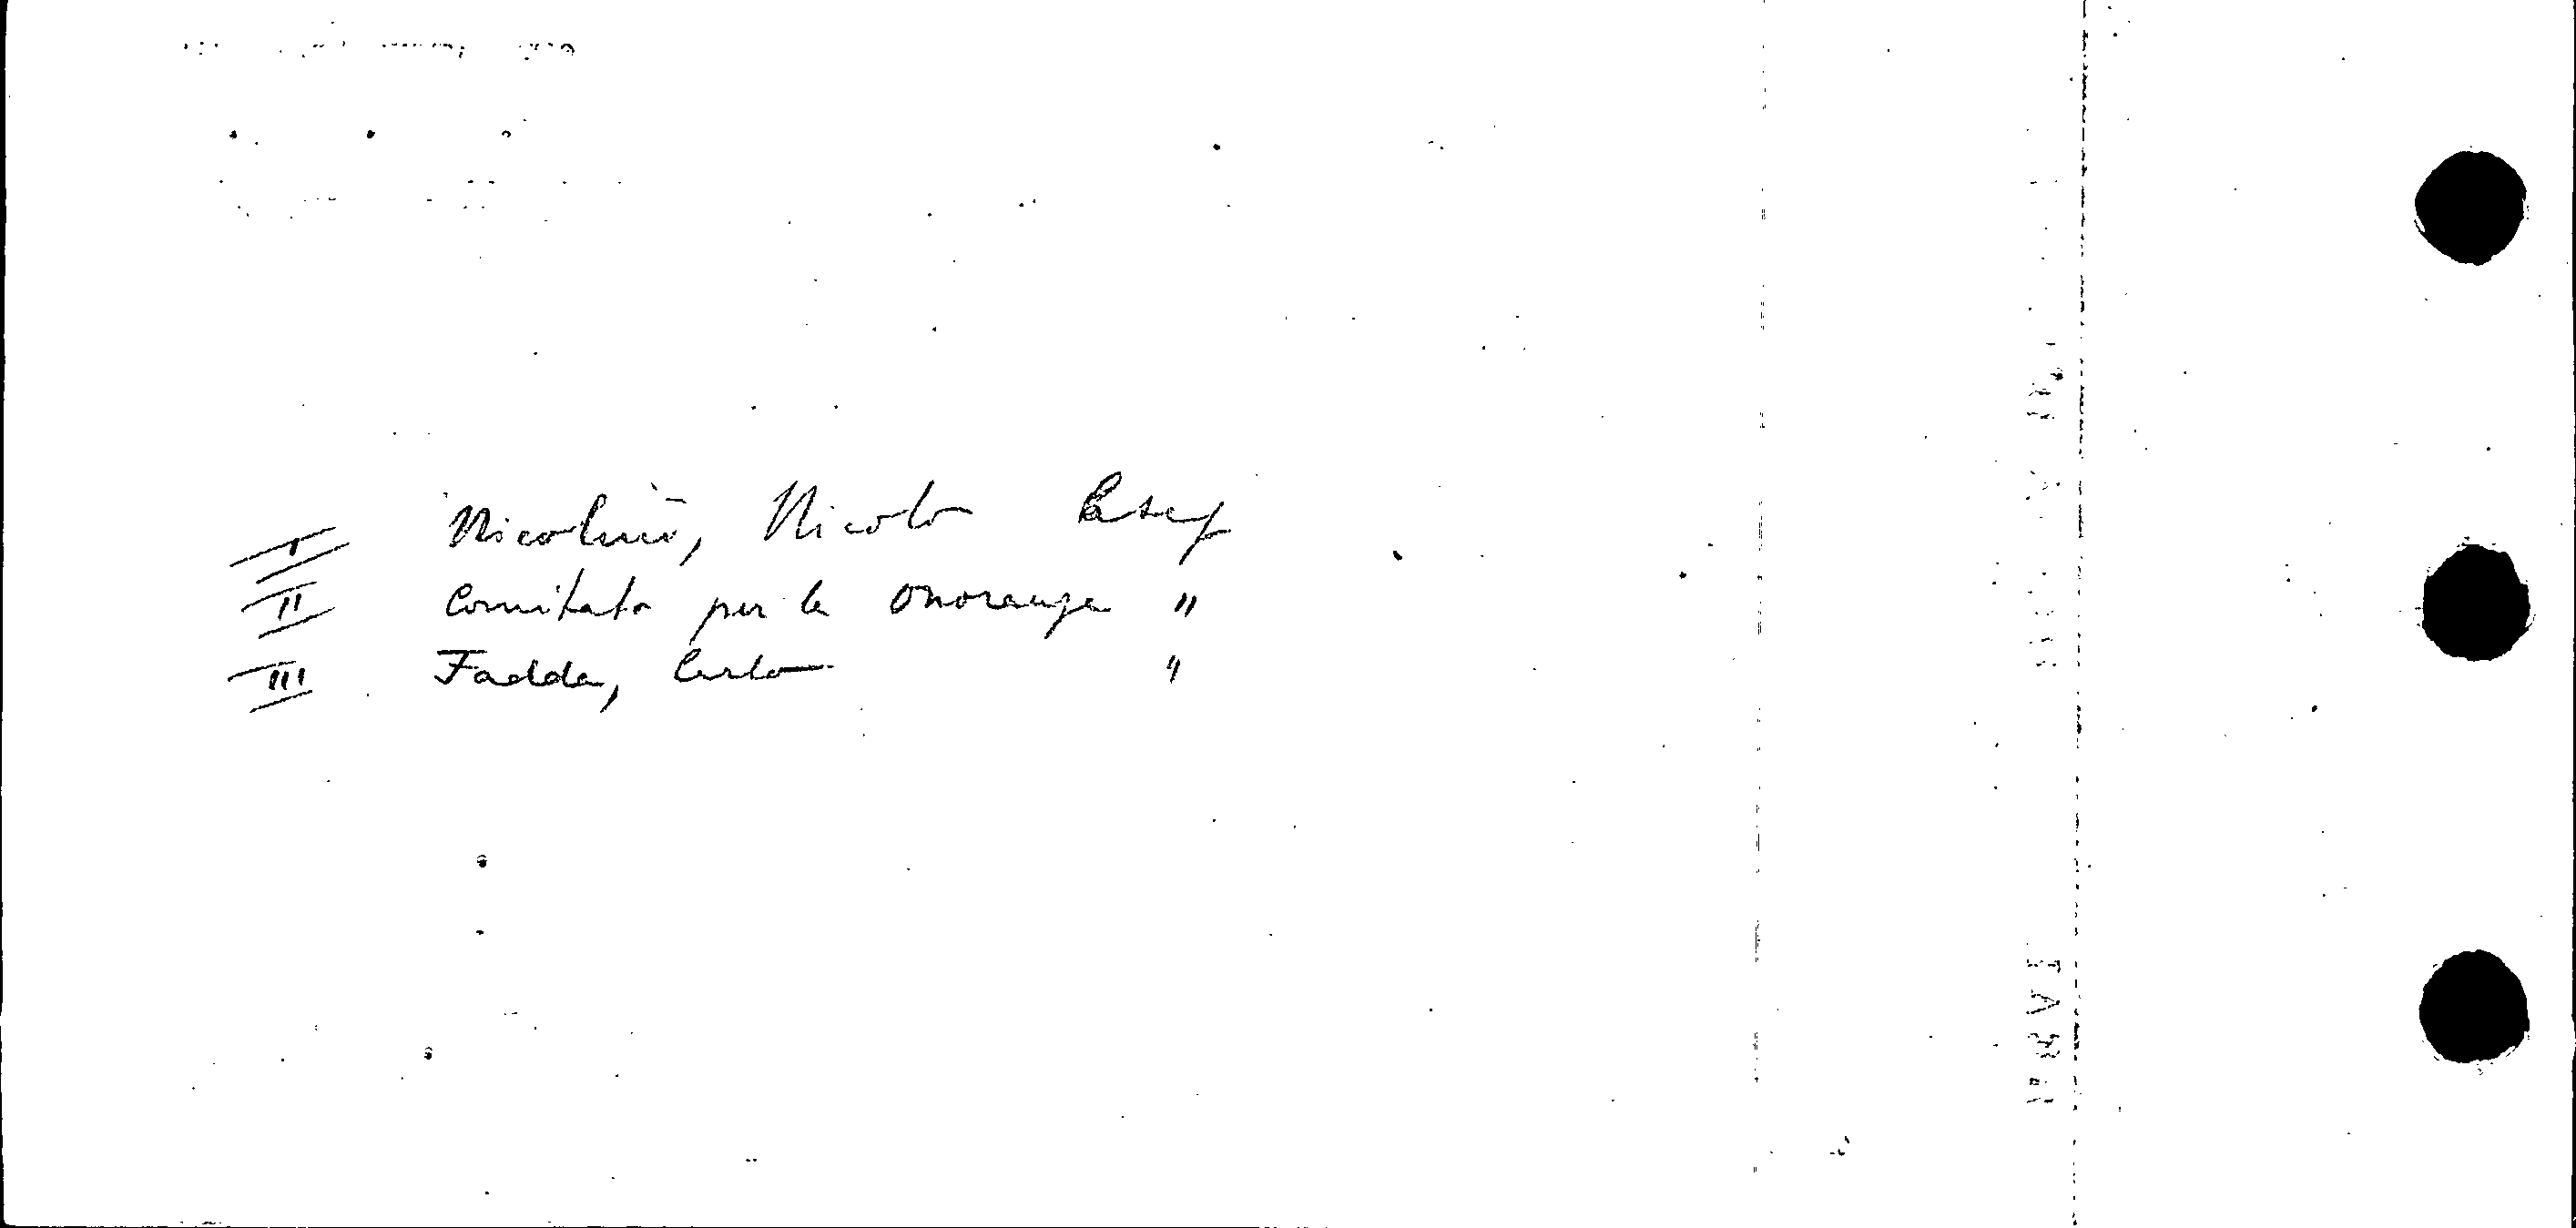 I Nicolini, Nicola
II Comitato per le onoranze "
III Fadda, Carlo "